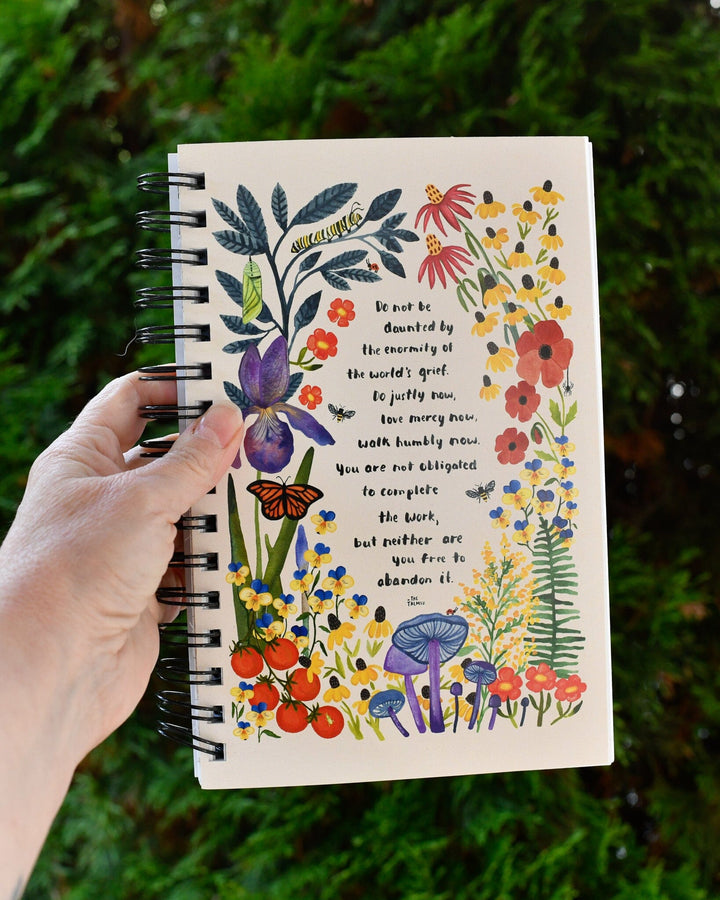 Do not be
daunted by
the enormity of
the world's grief.
Do justly now,
love mercy now,
walk humbly now.
You are not obligated
to complete
the work,
but neither are
you free to
abandon it.
-THE
TALMUD